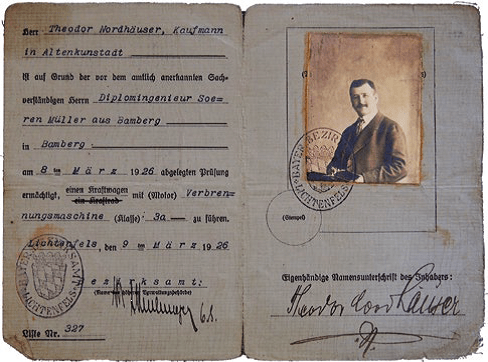 Herr Theodor Nordhäuser, Kaufmann
in Altenkunstadt
ist auf Grund der vor dem amtlich anerkannten Sach-
verständigen Herrn Diplomingenieur Soe-
ren Müller aus Bamberg
in Bamberg
am 8ten März 1926 abgelegten Prüfung
ermächtigt, einen Kraftwagen mit (Motor) Verbren-
ein Kraftrad
nungsmaschine (Klasse) 3a zu führen.
Lichtenfels, den 9ten März 1926
Bezirksamt:
(Name der höheren Verwaltungsbehörde)
BAYER. BEZIRKSAMT LICHTENFELS
Liste Nr. 327
BAYER. BEZIR
LICHTENFELS
(Stempel)
Eigenhändige Namensunterschrift des Inhabers:
Theodor Nordhäuser